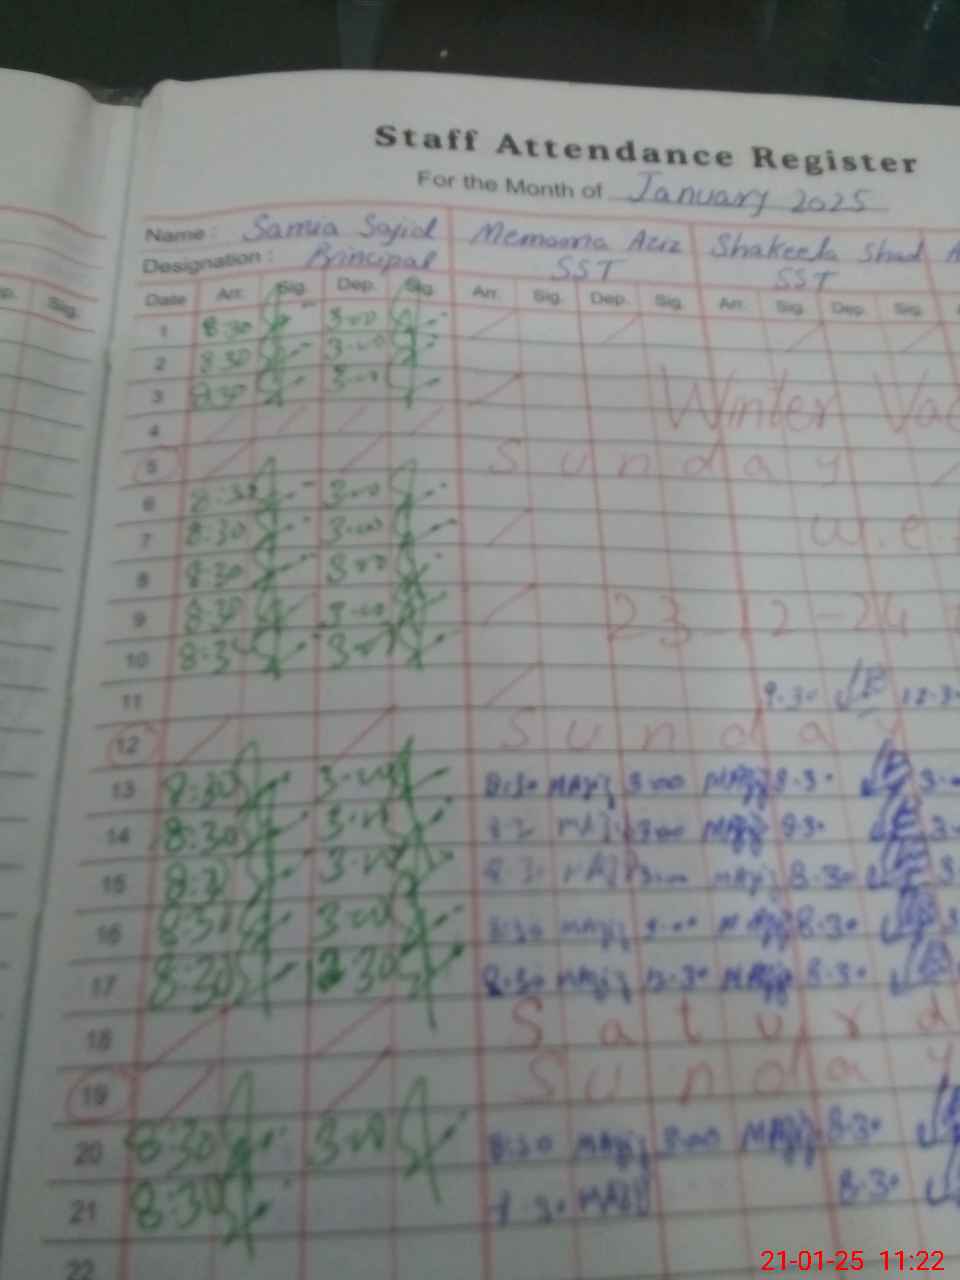 Staff Attendance Register
For the Month of January 2025
Name: Samia Sajid Memoona Aziz Shakeela Shad
Designation: Principal SST SST
p. Sig. Date Arr. Sig. Dep. Sig. Arr. Sig. Dep. Sig. Arr. Sig. Dep. Sig.
1 8:30 3:00
2 8:30 3:00
3 8:30 3:00 Winter Vac
4
5 Sunday
6 8:30 3:00
7 8:30 3:00 w.e.
8 8:30 3:00
9 8:30 3:00 23-12-24
10 8:30 3:00
11 9:30 12:3
12 Sunday
13 8:30 3:00 8:30 MAziz 3:00 MAziz 8:30
14 8:30 3:00 8:30 MAziz 3:00 MAziz 8:30
15 8:30 3:00 8:30 MAziz 3:00 MAziz 8:30
16 8:30 3:00 8:30 MAziz 3:00 MAziz 8:30
17 8:30 12:30 8:30 MAziz 12:30 MAziz 8:30
18 Saturd
19 Sunday
20 8:30 3:00 8:30 MAziz 3:00 MAziz 8:30
21 8:30 8:30 MAziz 8:30
22
21-01-25 11:22